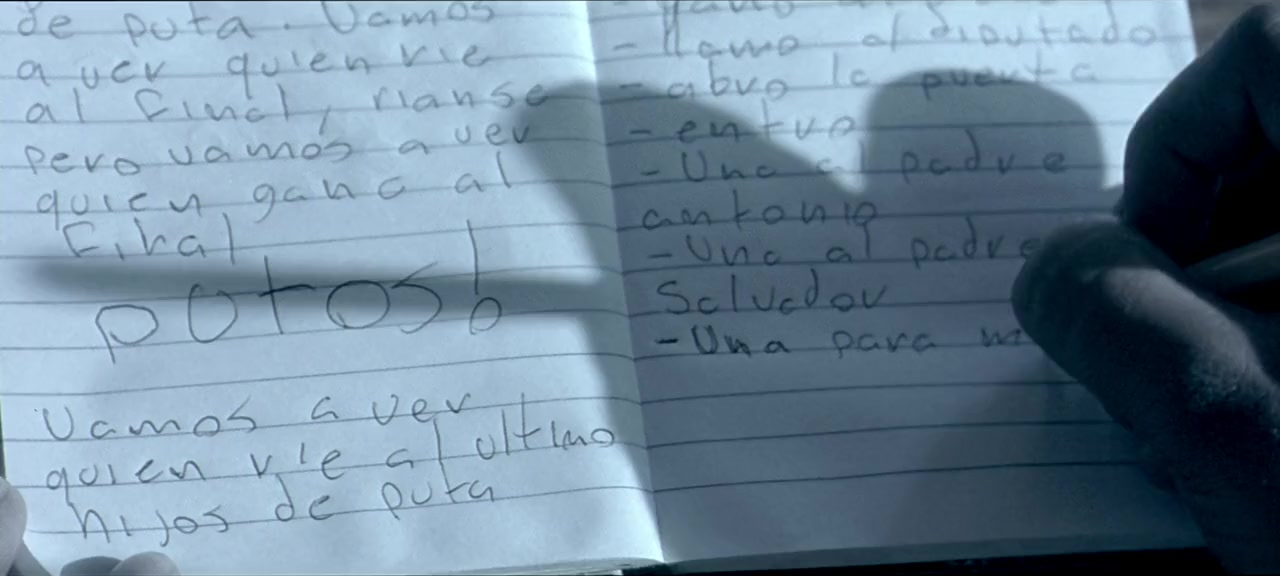 de puta. Vamos
a ver quien rie
al final, rianse
pero vamos a ver
quien gana al
final
potos!
Vamos a ver
quien rie al ultimo
hijos de puta
- llamo al diputado
- abro la puerta
- entro
- Una al padre
antonio
- Una al padre
Salvador
- Una para